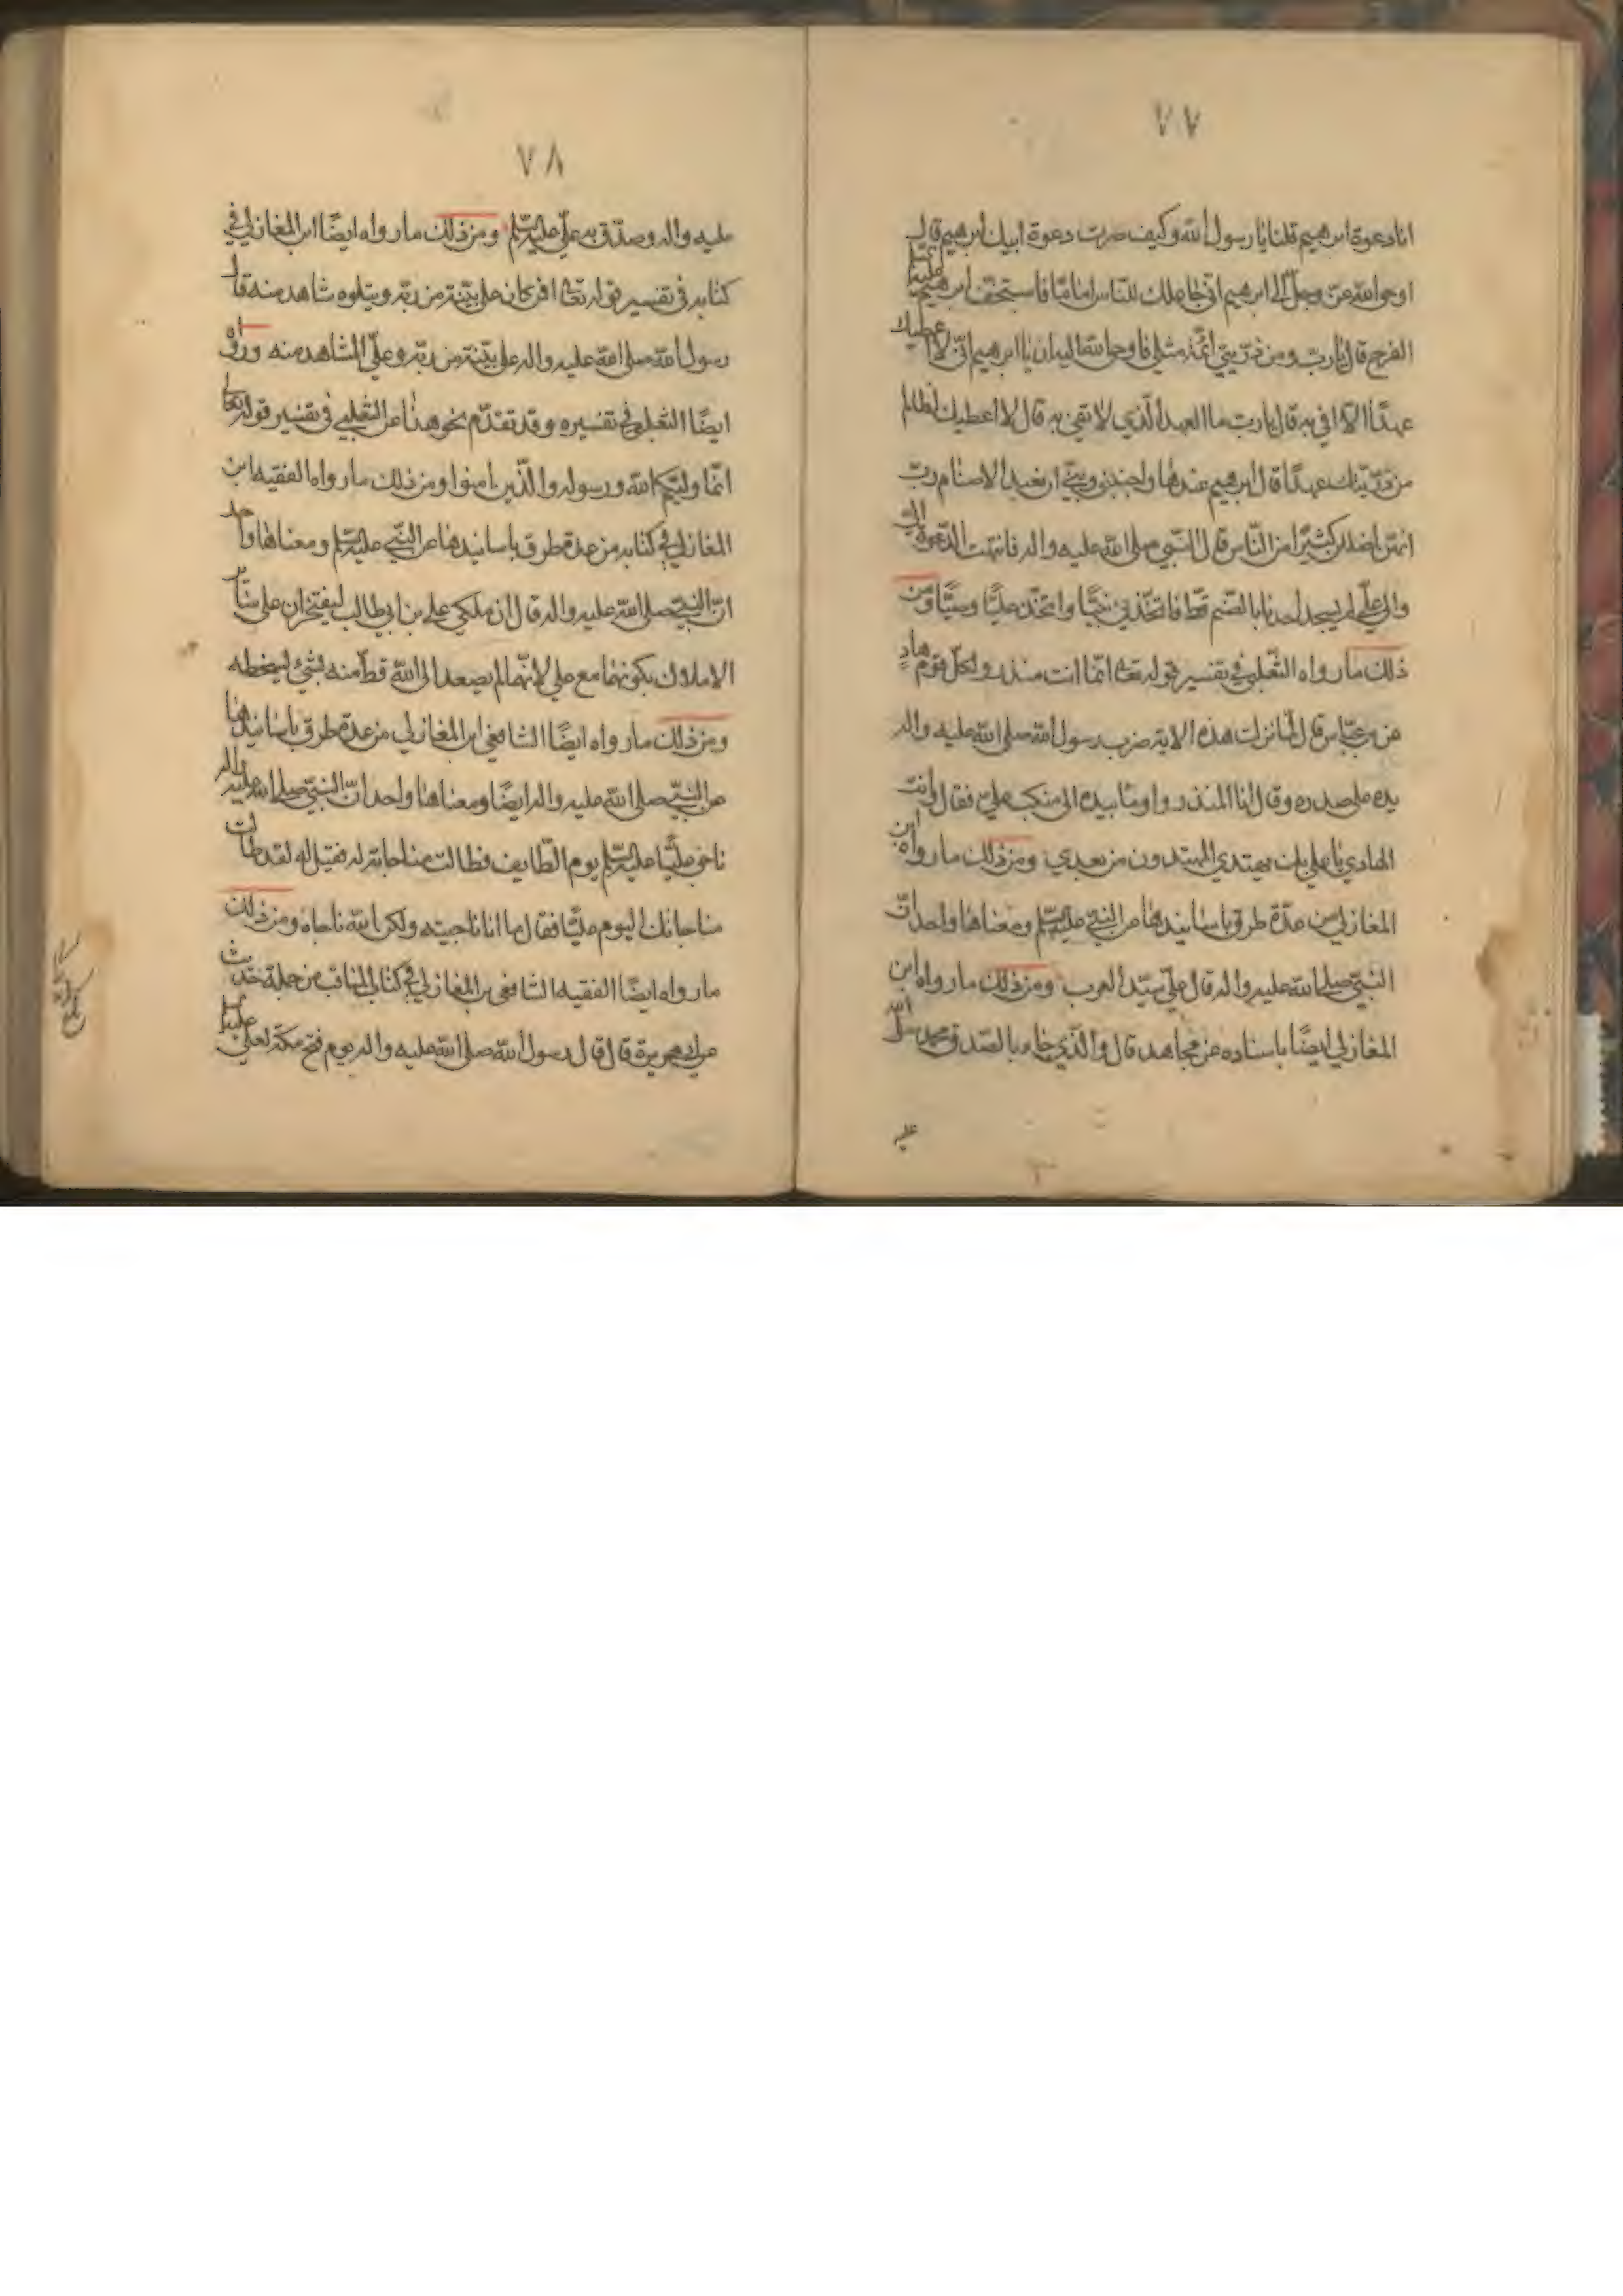 ٧٧
انا دعوة ابرهيم قلنا يا رسول الله وكيف صرت دعوة ابيك ابرهيم قال
اوحى الله عز وجل الى ابرهيم انى جاعلك للناس اماما فاستخف ابرهيم عليه السلام
الفرح قال يا رب ومن ذريتي ائمة مثلي فاوحى الله اليه ان يا ابرهيم انى لا اعطيك
عهدا الا افى به قال يا رب ما العهد الذي لا تفى به قال لا اعطيك لظالم
من ذريتك عهدا قال ابرهيم عندها واجنبني وبني ان نعبد الاصنام رب
انهن اضللن كثيرا من الناس قال النبي صلى الله عليه واله فانتهت الدعوة الى
والى علي لم يسجد احدنا بالصنم قط فاتخذني نبيا واتخذ عليا وصيا ومن
ذلك ما رواه الثعلبي في تفسير قوله تعالى انما انت منذر ولكل قوم هاد
عن بن عباس قال لما نزلت هذه الاية ضرب رسول الله صلى الله عليه واله
يده على صدره وقال انا المنذر واومأ بيده الى منكب علي فقال وانت
الهادي يا علي بك يهتدي المهتدون من بعدي ومن ذلك ما رواه ابن
المغازلي من عدة طرق باسانيدها عن النبي عليه السلم ومعناها واحد ان
النبي صلى الله عليه واله قال علي سيد العرب ومن ذلك ما رواه ابن
المغازلي ايضا باسناده عن مجاهد قال والذي جاء بالصدق محمد صلى الله
عليه
٧٨
عليه واله وصدق به علي عليه السلم ومن ذلك ما رواه ايضا ابن المغازلي في
كتابه في تفسير قوله تعالى افمن كان على بينة من ربه ويتلوه شاهد منه قال
رسول الله صلى الله عليه واله على بينة من ربه وعلي الشاهد منه ورواه
ايضا الثعلبي في تفسيره وقد تقدم نحو هذا عن الثعلبي في تفسير قوله تعالى
انما وليكم الله ورسوله والذين امنوا ومن ذلك ما رواه الفقيه ابن
المغازلي في كتابه من عدة طرق باسانيدها عن النبي عليه السلم ومعناها واحد
ان النبي صلى الله عليه واله قال ان ملكي علي بن ابي طالب ليفتخران على سائر
الاملاك بكونهما مع علي لانهما لم يصعدا الى الله قط منه بشئ ليسخطه
ومن ذلك ما رواه ايضا الشافعي ابن المغازلي من عدة طرق باسانيدها
عن النبي صلى الله عليه واله ايضا ومعناها واحد ان النبي صلى الله عليه واله
ناجى عليا عليه السلم يوم الطايف فطالت مناجاته له فقيل له لقد طالت
مناجاتك اليوم عليا فقال ما انا ناجيته ولكن الله ناجاه ومن ذلك
ما رواه ايضا الفقيه الشافعي بن المغازلي في كتاب المناقب من جملة حديث
عن ابى هريرة قال قال رسول الله صلى الله عليه واله يوم فتح مكة لعلي عليه السلام